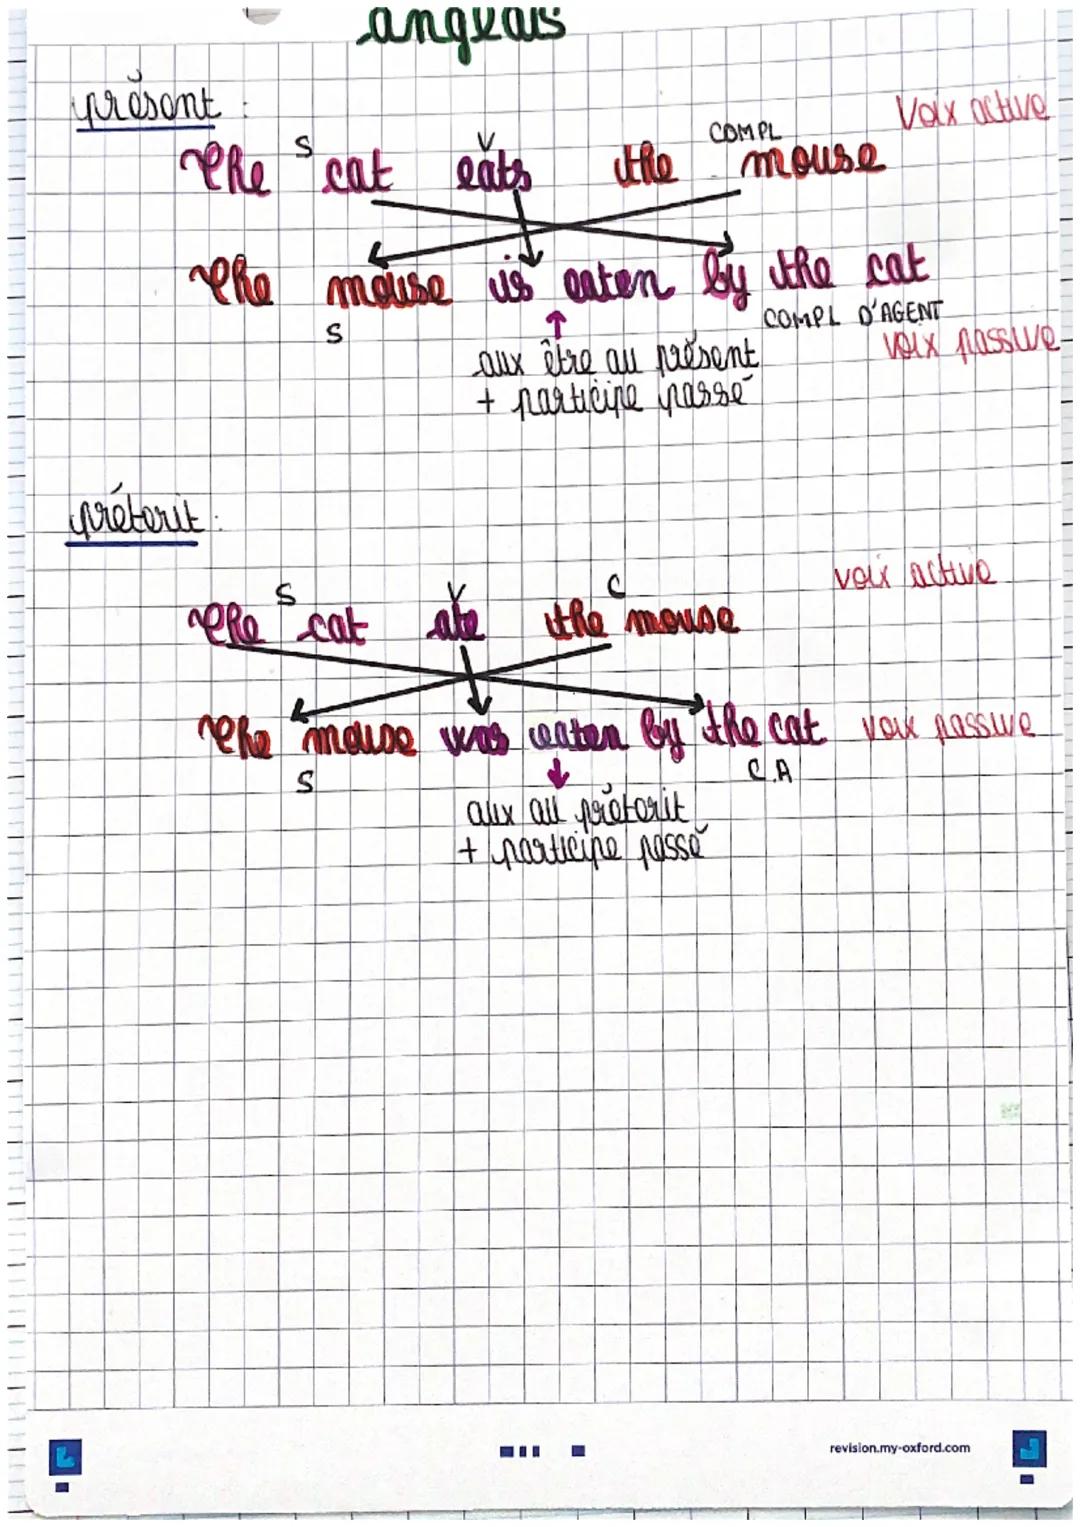 anglais
présent :
Voix active
S V COMPL
The cat eats the mouse
The mouse is eaten by the cat
S COMPL D'AGENT
voix passive
aux être au présent
+ participe passé
préterit :
voix active
S V C
The cat ate the mouse
The mouse was eaten by the cat voix passive
S C.A
aux au préterit
+ participe passé
revision.my-oxford.com